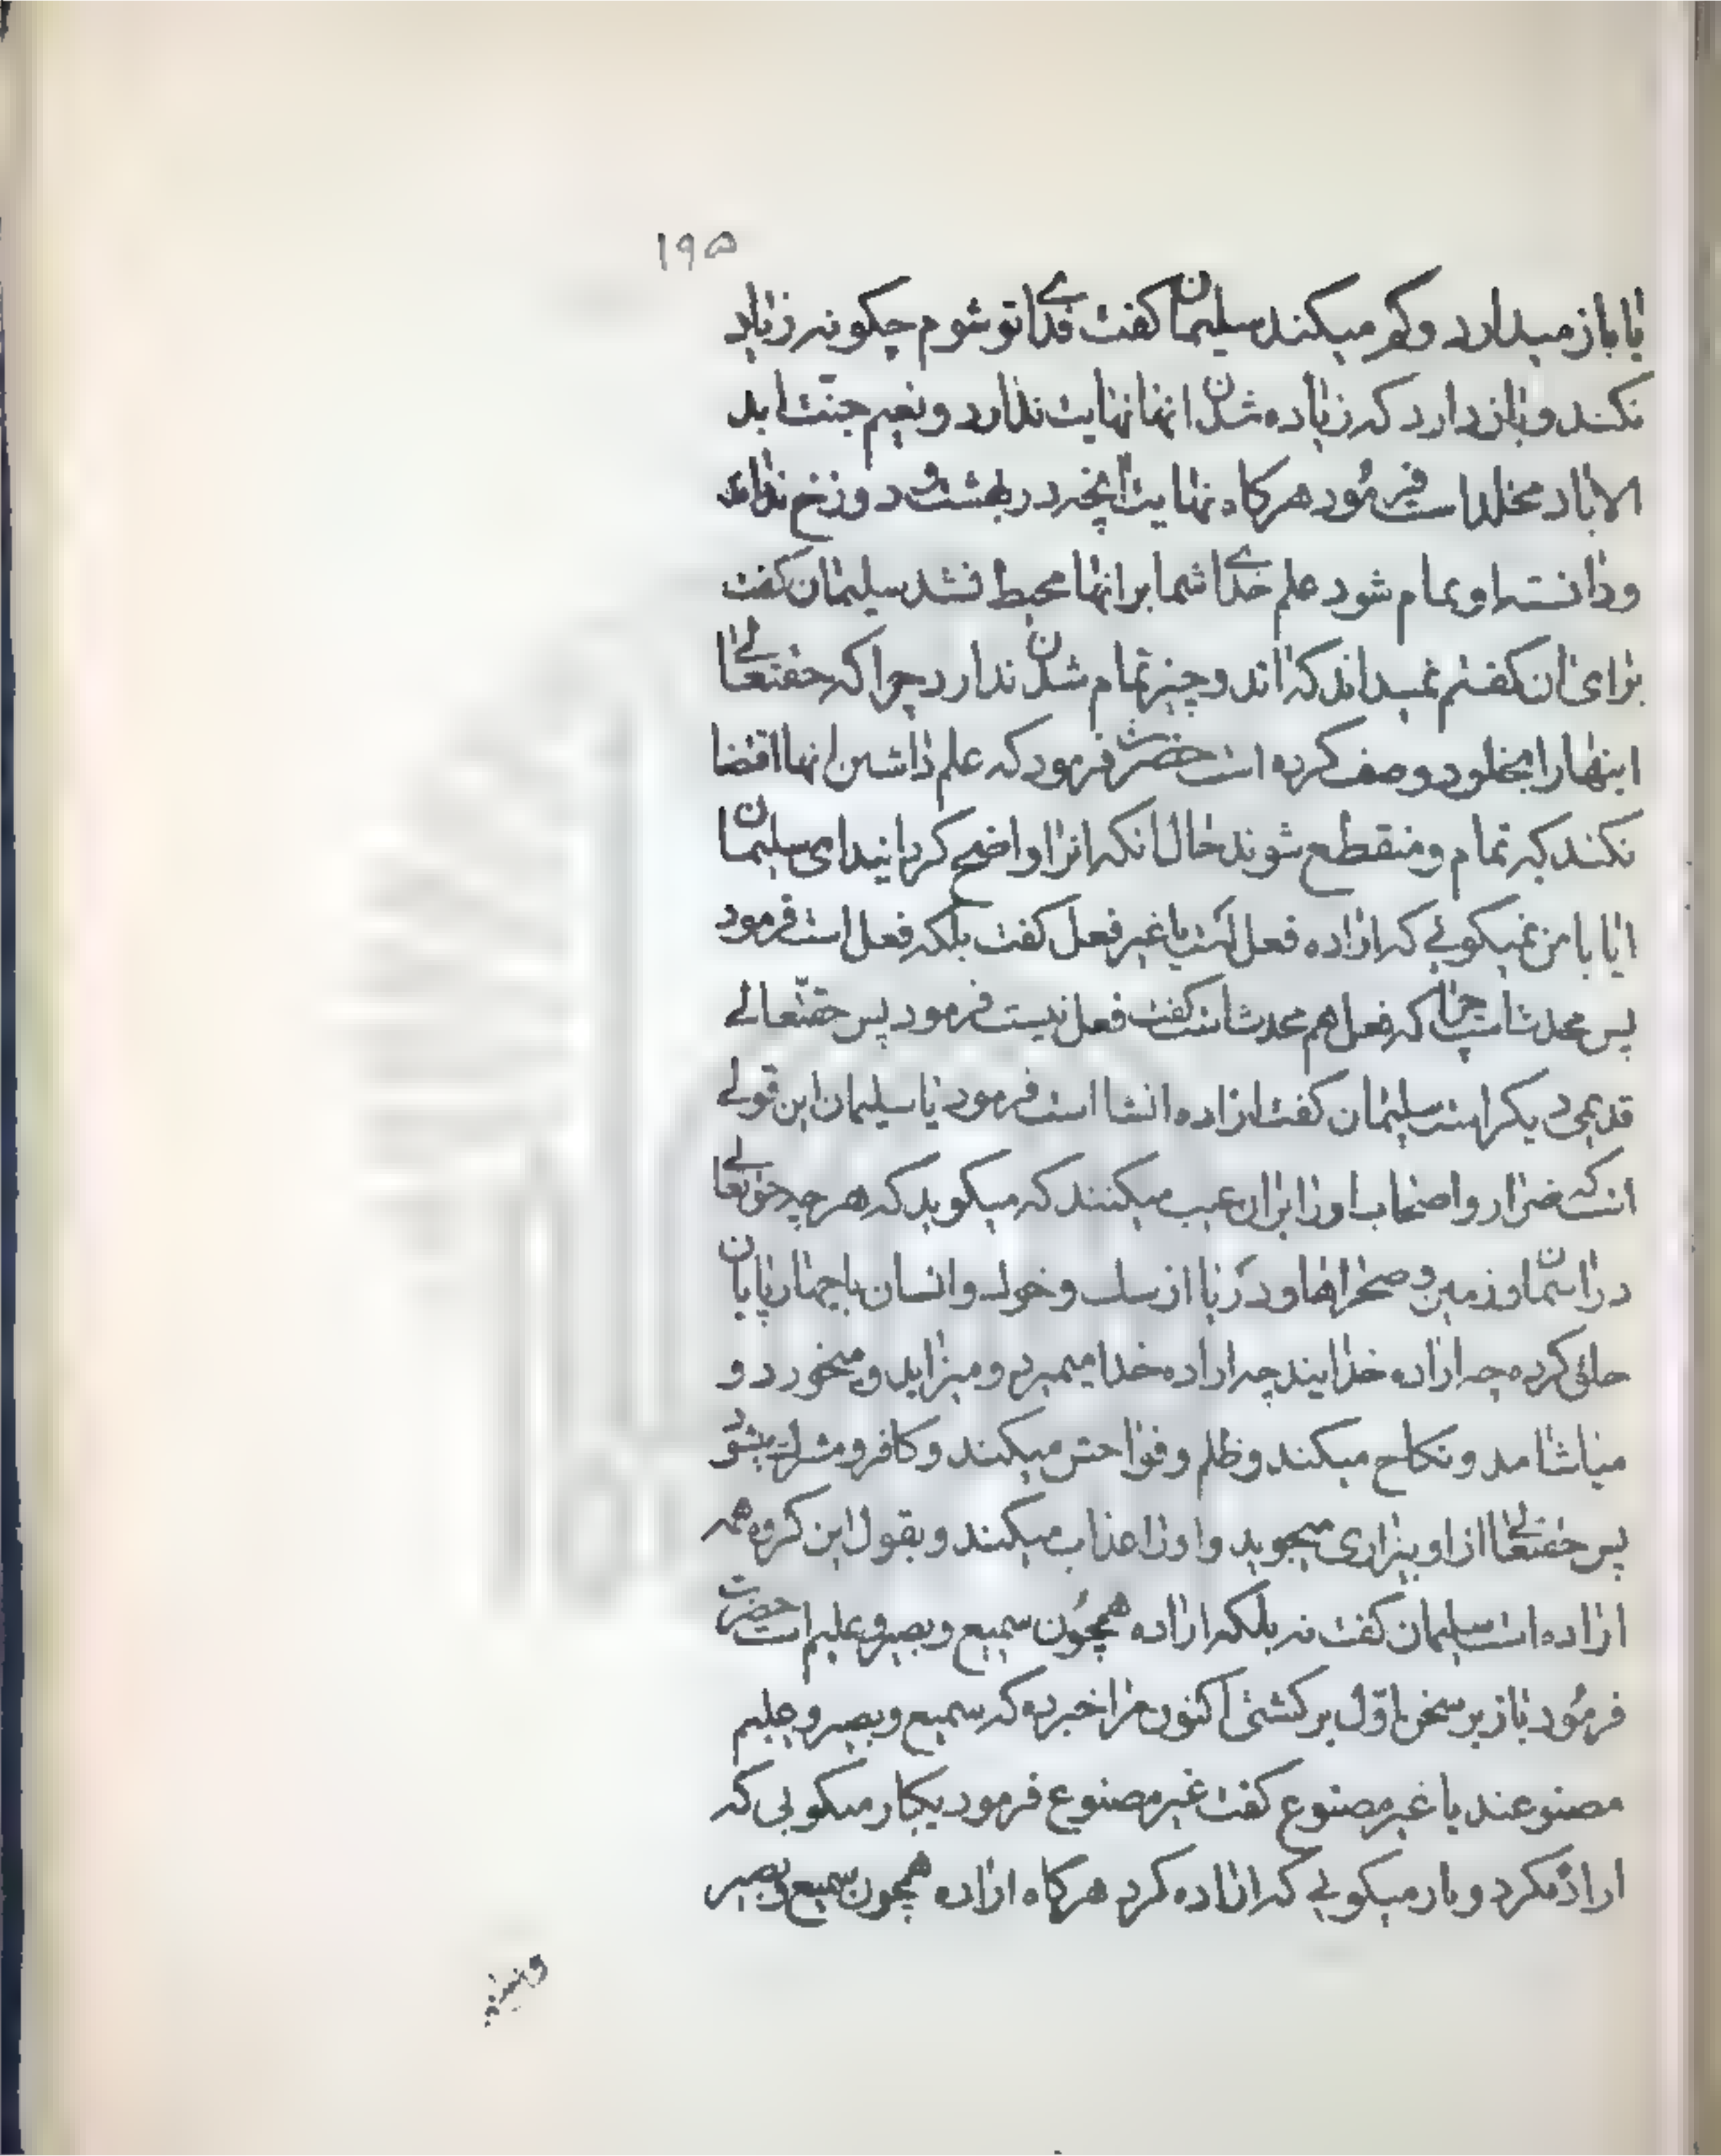 ۱۹۵
یا باز میدارد و کم میکند سلیمان کفت فدای تو شوم چکونه زیاد
نکند و باز دارد که زیاده شدن انها نهایت ندارد و نعیم جنّت ابد
الاباد مخلد است فرمُود هرکاه نهایت انچه در بهشت و دوزخ نداند
و دانسته او تمام شود علم خدای شما بر انها محیط نشد سلیمان کفت
برای ان کفتم نمیداند که اند و چیز تمام شدن ندارد چرا که حقتعالی
اینها را بخلود وصف کرده است حضرت فرمود که علم داشتن انها اقتضا
نکند که تمام و منقطع شوند حال انکه انرا واضح کردانیدای سلیمان
ایا با من نمیکویی که اراده فعل است یا غیر فعل کفت بلکه فعل است فرمود
پس محدث است چرا که فعل هم محدث است کفت فعل نیست فرمود پس حقتعالی
قدیمی دیکر است سلیمان کفت اراده انشا است فرمود یا سلیمان این قولی
است که ضرار و اصحاب او را بران عیب میکنند که میکوید که هر چه حق تعالی
در اسمان و زمین و صحراها و دریا از سک و خوک و انسان یا چهارپایان
خلق کرده چه اراده خدایند چه اراده خدا میمیرد و میزاید و میخورد و
میاشامد و نکاح میکند و ظلم و فواحش میکند و کافر و مشرک میشود
پس حقتعالی از او بیزاری میجوید و او را عذاب میکند و بقول این کروه همه
اراده است سلیمان کفت نه بلکه اراده همچُون سمیع و بصیر و علیم است حضرت
فرمُود باز بر سخن اوّل برکشتی اکنون مرا خبر ده که سمیع و بصیر و علیم
مصنوعند یا غیر مصنوع کفت غیر مصنوع فرمود یکبار میکویی که
اراده نکرد و بار میکویی که اراده کرد هرکاه اراده همچون سمیع و بصیر